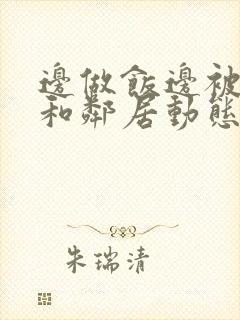 邊做飯邊被
和鄰居動態
朱瑞清